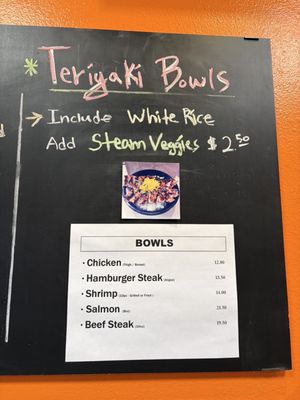 * Teriyaki Bowls
→ Include White Rice
Add Steam Veggies $2.50
BOWLS
· Chicken 12.80
· Hamburger Steak 13.50
· Shrimp 14.00
· Salmon
· Beef Steak 19.50